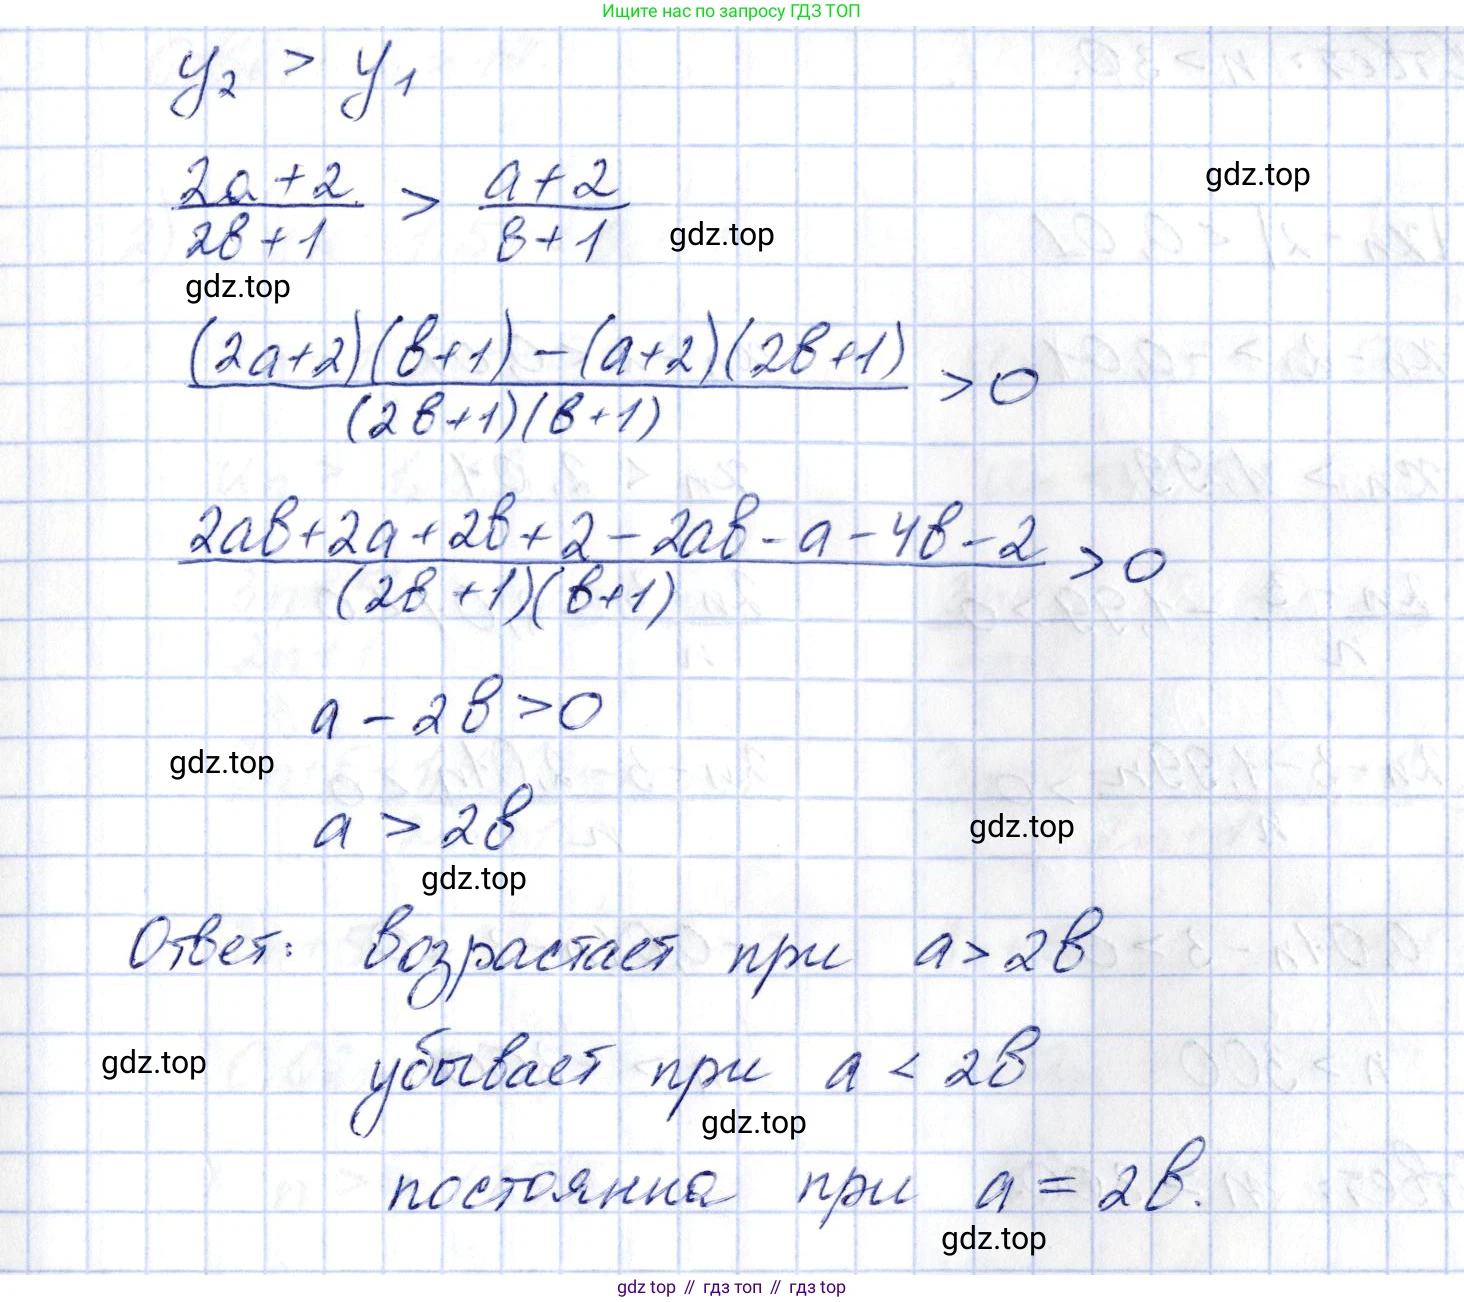 Ищите нас по запросу ГДЗ ТОП
y₂ > y₁
(2a+2)/(2b+1) > (a+2)/(b+1)
gdz.top
gdz.top
gdz.top
((2a+2)(b+1) - (a+2)(2b+1))/((2b+1)(b+1)) > 0
(2ab+2a+2b+2-2ab-a-4b-2)/((2b+1)(b+1)) > 0
a - 2b > 0
gdz.top
a > 2b
gdz.top
gdz.top
Ответ: возрастает при a > 2b
gdz.top
убывает при a < 2b
gdz.top
постоянна при a = 2b.
gdz.top
gdz top // гдз топ // гдз top